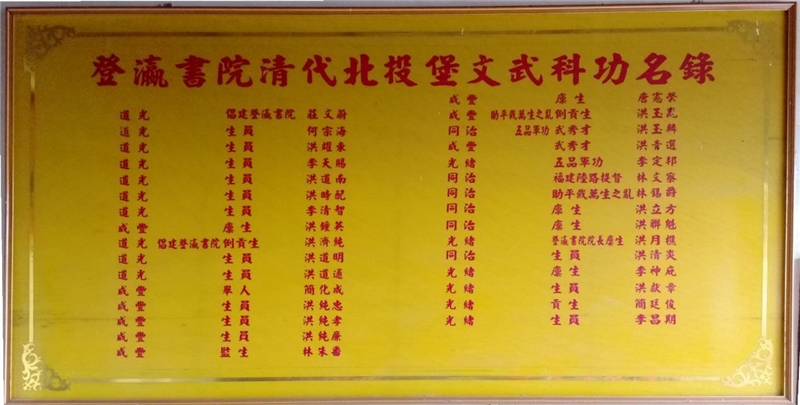 登瀛書院清代北投堡文武科功名錄
道光 倡建登瀛書院 莊文蔚
道光 生員 何宗海
道光 生員 洪耀東
道光 生員 李天賜
道光 生員 洪道南
道光 生員 洪時配
道光 生員 李清智
咸豐 廩生 洪鐘英
道光 倡建登瀛書院 例貢生 洪濟純
道光 生員 洪道明
道光 生員 洪道通
咸豐 舉人 簡化成
咸豐 生員 洪純忠
咸豐 生員 洪純孝
咸豐 生員 洪純廉
咸豐 監生 林朱番
咸豐 廩生 唐憲榮
咸豐 助平戴萬生之亂 例貢生 洪玉崑
同治 五品軍功 武秀才 洪玉麟
咸豐 武秀才 洪青選
光緒 五品軍功 李定邦
同治 福建陸路提督 林文察
同治 助平戴萬生之亂 林錫爵
同治 廩生 洪立方
同治 廩生 洪聯魁
光緒 登瀛書院院長廩生 洪月樵
同治 生員 洪清炎
光緒 廩生 李神庇
光緒 生員 洪猷章
光緒 貢生 簡廷俊
光緒 生員 李昌期